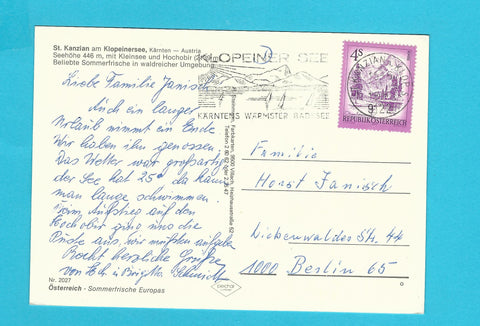 St. Kanzian am Klopeinersee, Kärnten — Austria
Seehöhe 446 m, mit Kleinsee und Hochobir (2139 m)
Beliebte Sommerfrische in waldreicher Umgebung
Liebe Familie Janisch
Auch ein langer
Urlaub nimmt ein Ende.
Wir haben ihn genossen.
Das Wetter war großartig
der See hat 25° da kann
man lange schwimmen.
Beim Aufstieg auf den
Hochobir ging uns die
Puste aus. Wir mußten aufgeben
Recht herzliche Grüße
von u. Brigitte
Nr. 2027
Österreich - Sommerfrische Europas
KLOPEINER SEE
KÄRNTENS WÄRMSTER BADESEE
4S
REPUBLIK ÖSTERREICH
9122
9500 Villach
Familie
Horst Janisch
Dickenwaldes Str. 44
1000 Berlin 65